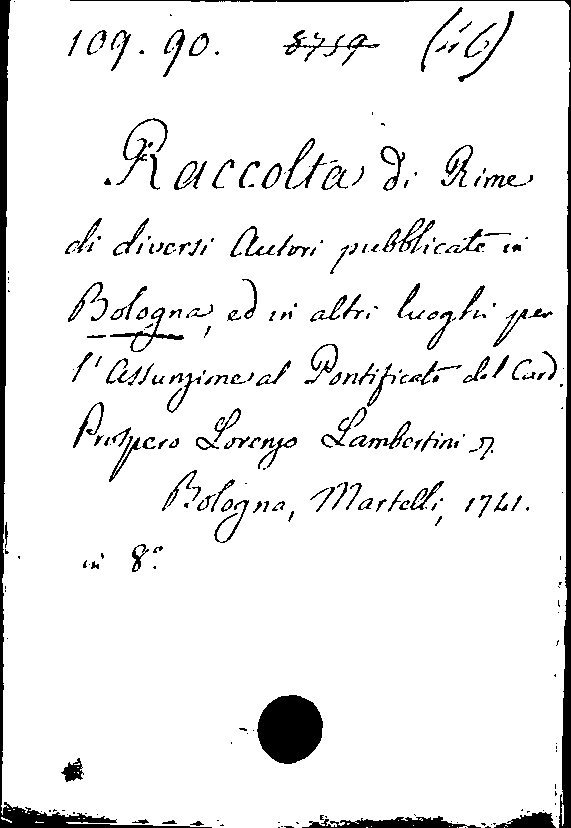 109. 90. 8759 (n 6)
Raccolta di Rime
di diversi Autori pubblicate in
Bologna, ed in altri luoghi per
l'Assunzione al Pontificato del Card.
Prospero Lorenzo Lambertini
Bologna, Martelli, 1741.
in 8.º